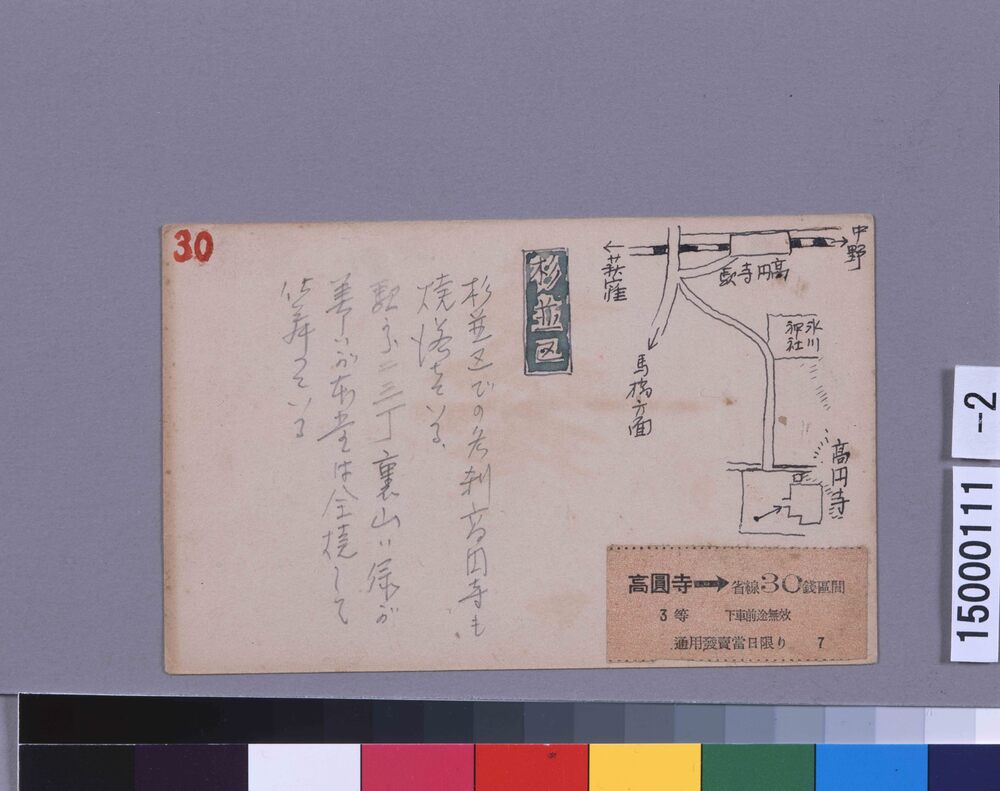 30
中野
高円寺駅
荻窪
氷川
神社
馬橋方面
高円寺
杉並区
杉並区での名刹高円寺も
焼落ちている
駅から二三丁裏山は緑が
美しいが本堂は全焼して
高圓寺➡省線30錢區間
3等 下車前途無效
通用發賣當日限り 7
15000111
-2